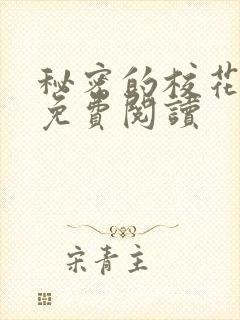 秘密的校花
免費閱讀
宋青主